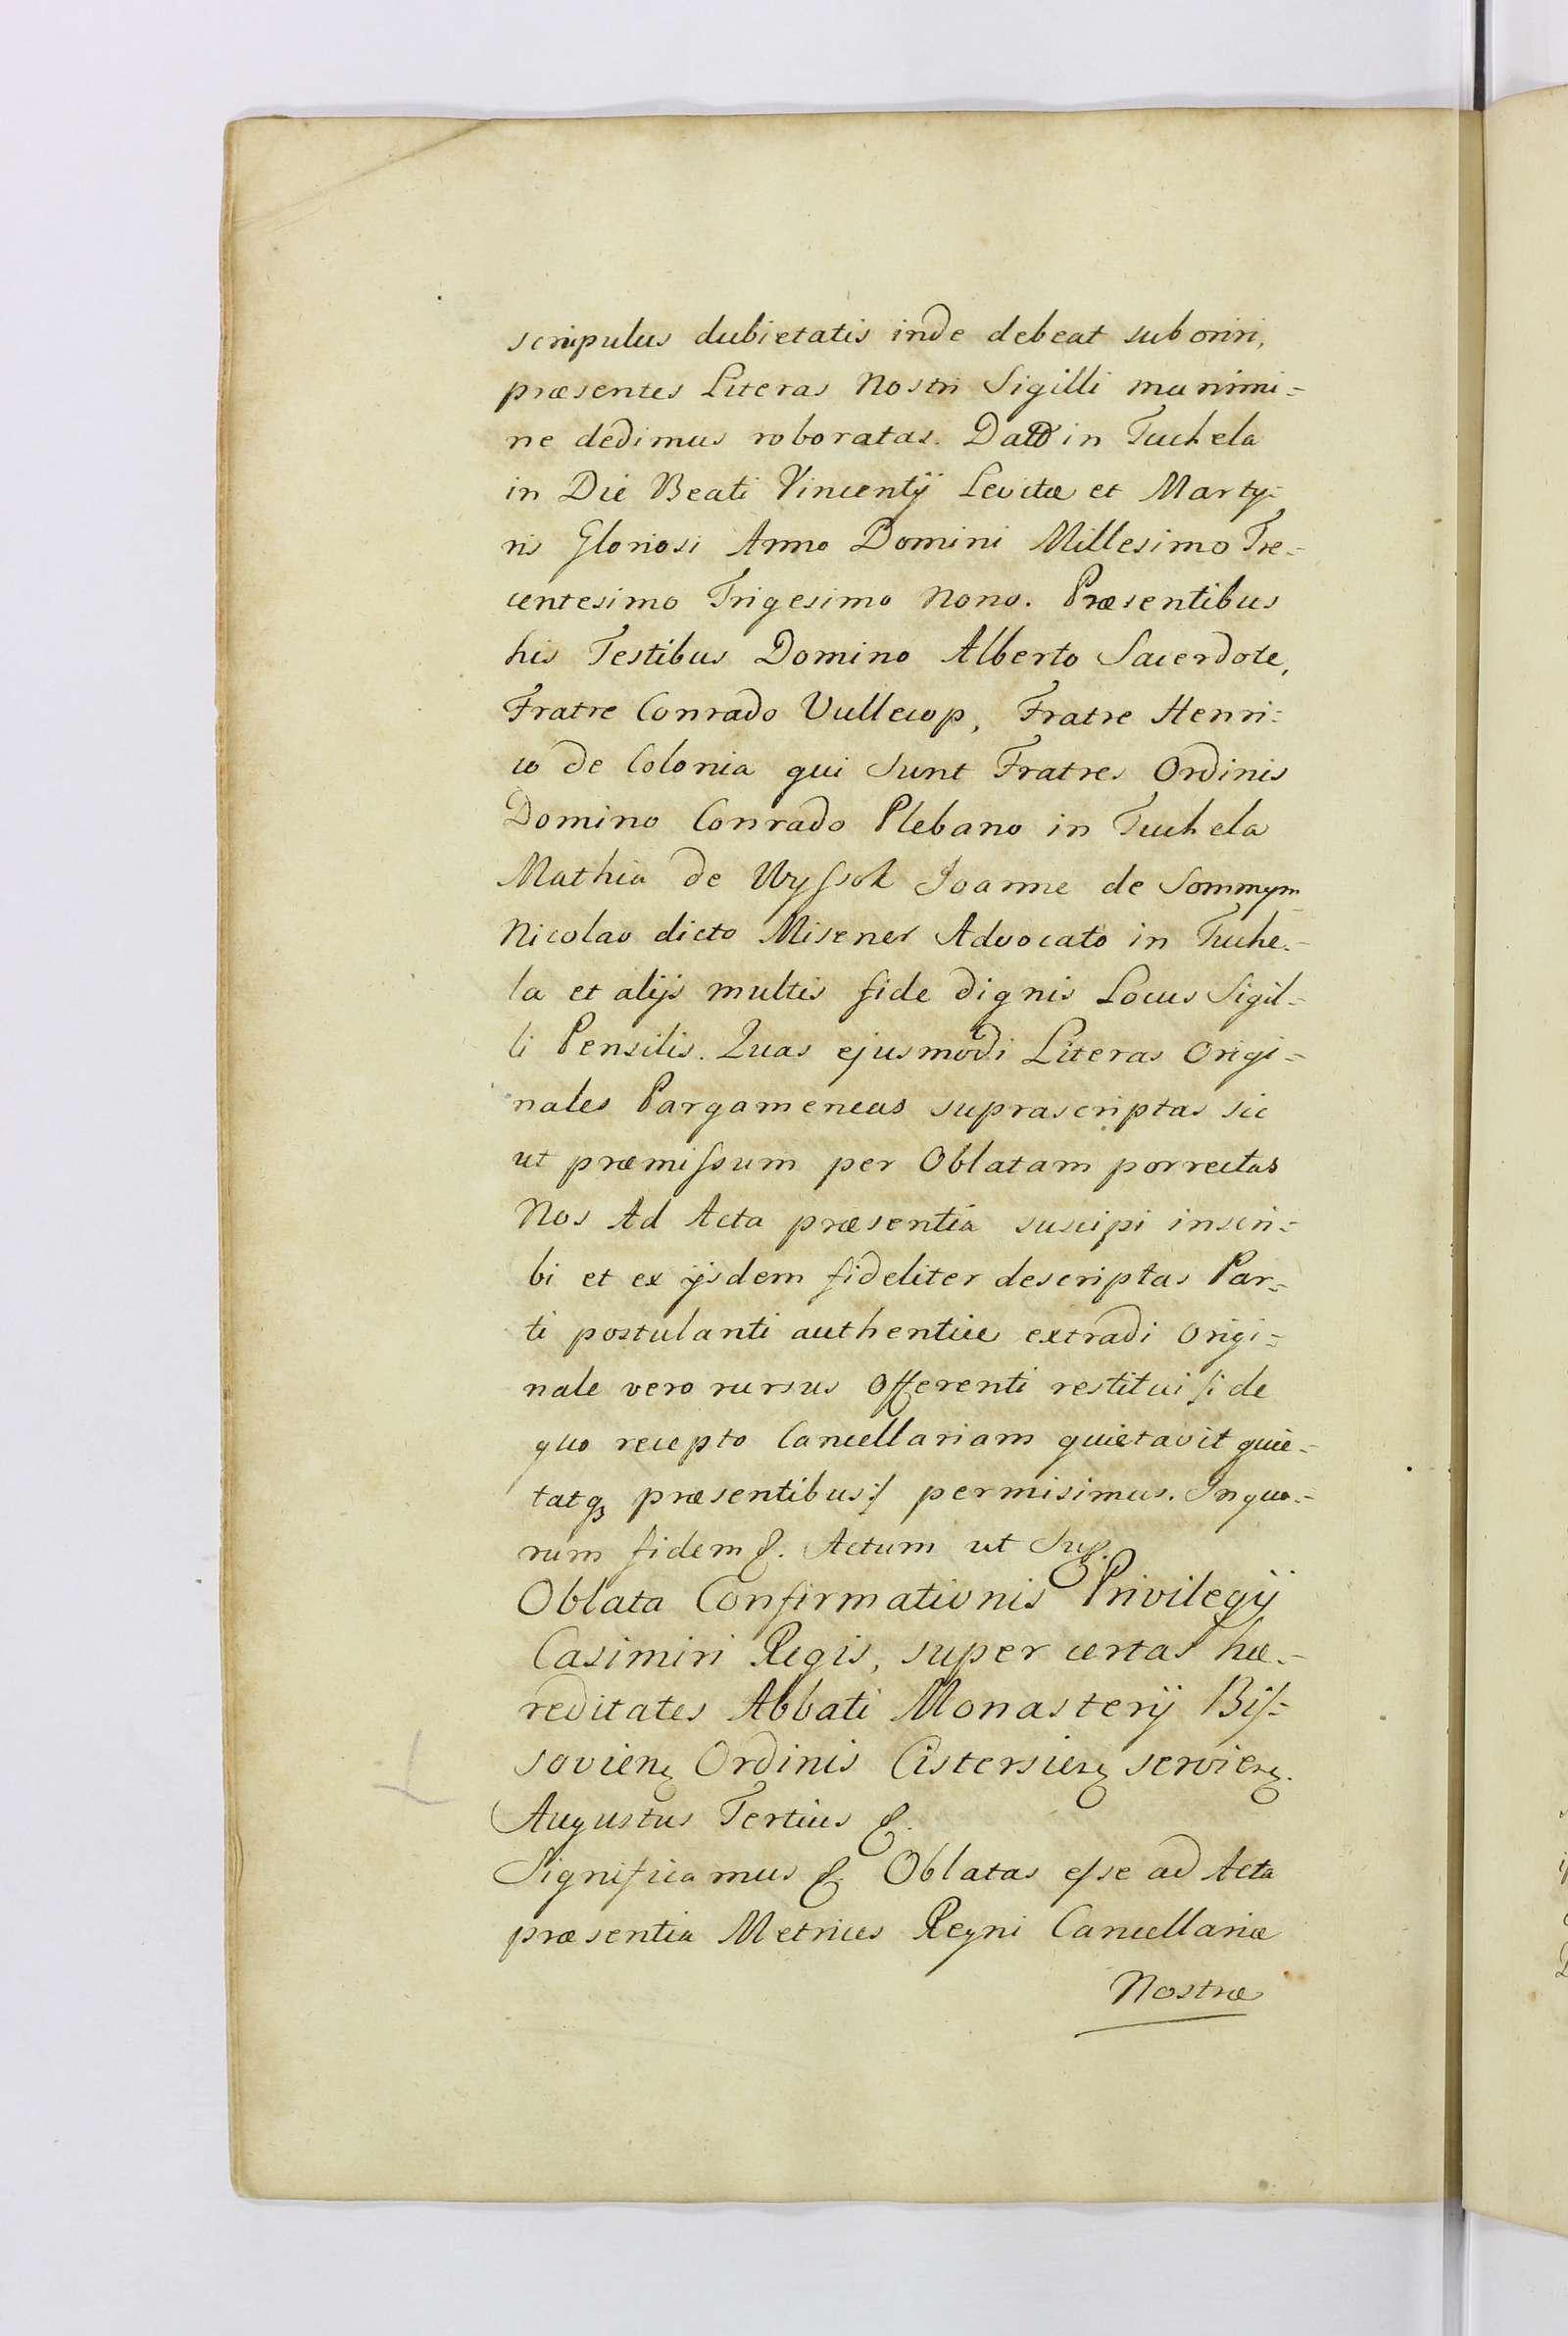 scrupulus dubietatis inde debeat suboriri,
præsentes Literas Nostri Sigilli munimi=
ne dedimus roboratas. Datt in Tuchela
in Die Beati Vincentij Levitæ et Marty=
ris Gloriosi Anno Domini Millesimo Tre=
centesimo Trigesimo Nono. Præsentibus
his Testibus Domino Alberto Sacerdote,
Fratre Conrado Vullecop, Fratre Henri=
co de Colonia qui sunt Fratres Ordinis
Domino Conrado Plebano in Tuchela
Mathia de Wyssok Joanne de Sommym
Nicolao dicto Misener Advocato in Tuche=
la et alijs multis fide dignis Locus Sigil=
li Pensilis. Quas ejusmodi Literas Origi=
nales Pargameneas suprascriptas sic
ut præmissum per Oblatam porrectas
Nos Ad Acta præsentia suscipi inscri=
bi et ex ijsdem fideliter descriptas Par=
ti postulanti authentice extradi Origi=
nale vero rursus Offerenti restitui /: de
quo recepto Cancellariam quietavit quie=
tatq præsentibus :/ permisimus. In quo=
rum fidem &. Actum ut Sup.
Oblata Confirmationis Privilegij
Casimiri Regis, super certas hæ=
reditates Abbati Monasterij Bys=
sovien Ordinis Cistersien servien.
Augustus Tertius &.
Significamus &. Oblatas esse ad Acta
præsentia Metrices Regni Cancellariæ
Nostræ